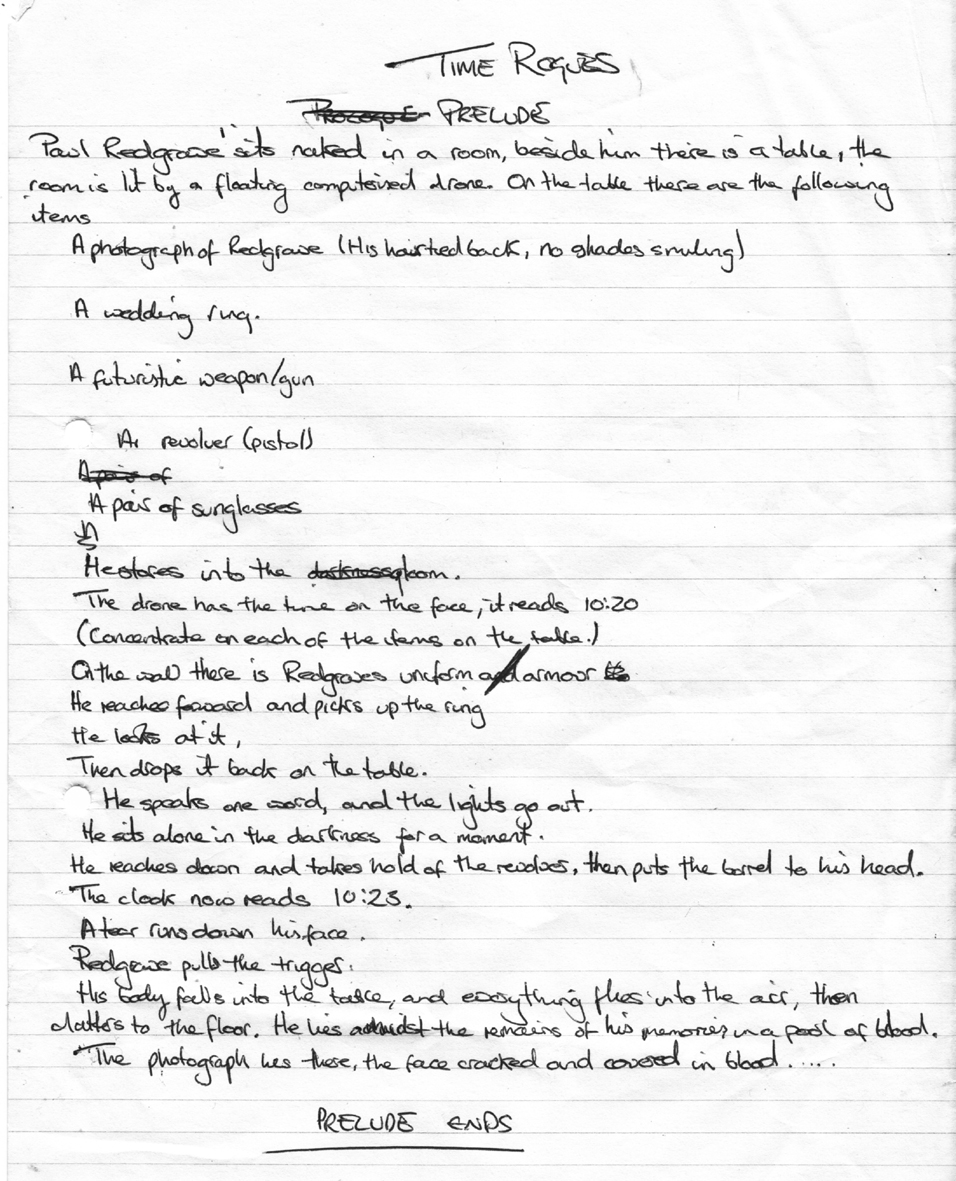 TIME ROGUES
PROLOGUE PRELUDE
Paul Redgrave sits naked in a room, beside him there is a table, the
room is lit by a floating computerised drone. On the table there are the following
items
A photograph of Redgrave (His hair tied back, no shades smiling)
A wedding ring.
A futuristic weapon/gun
A revolver (pistol)
A pair of
A pair of sunglasses
He stares into the darkness gloom.
The drone has the time on the face, it reads 10:20
(Concentrate on each of the items on the table.)
On the wall there is Redgraves uniform and armour
He reaches forward and picks up the ring
He looks at it,
Then drops it back on the table.
He speaks one word, and the lights go out.
He sits alone in the darkness for a moment.
He reaches down and takes hold of the revolver, then puts the barrel to his head.
The clock now reads 10:23.
A tear runs down his face.
Redgrave pulls the trigger.
His body falls into the table, and everything flies into the air, then
clatters to the floor. He lies admidst the remains of his memories in a pool of blood.
The photograph lies there, the face cracked and covered in blood.....
PRELUDE ENDS